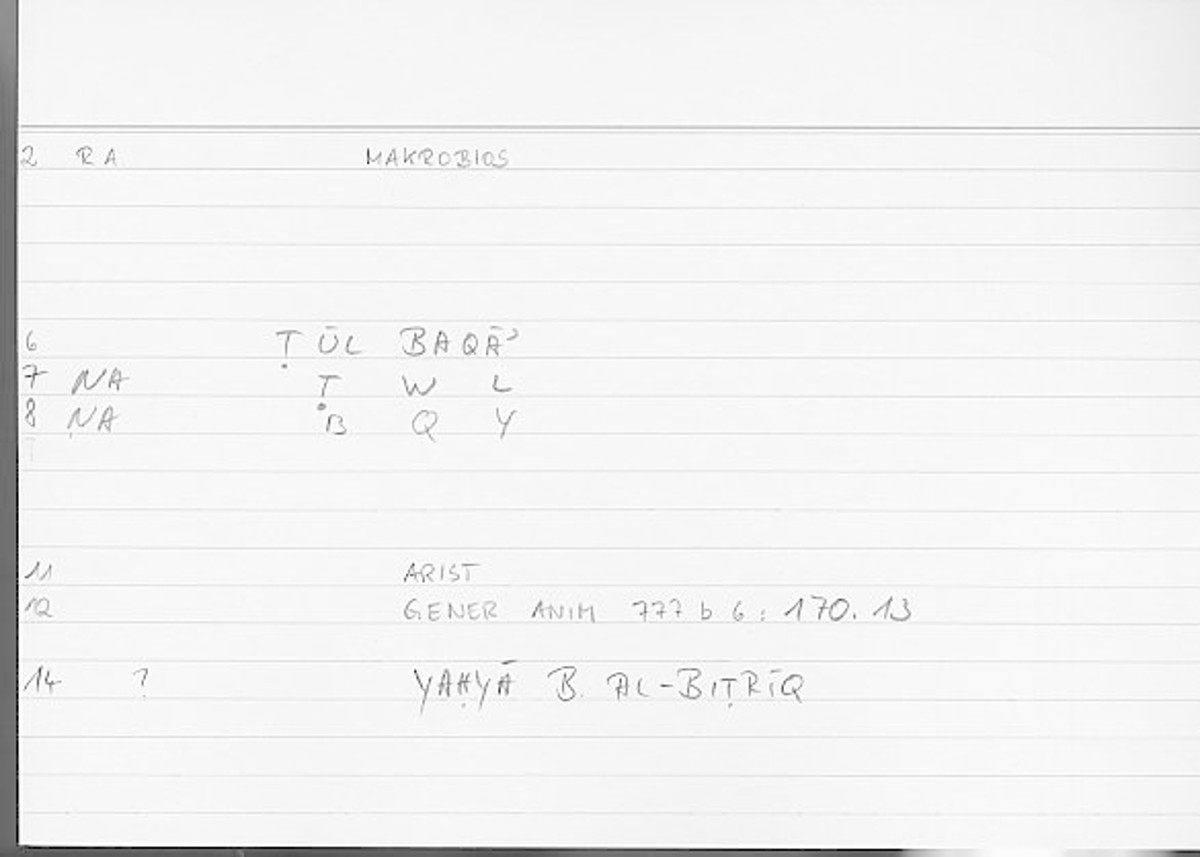 2 RA MAKROBIOS
6 ṬŪL BAQĀʾ
7 NA Ṭ W L
8 NA B Q Y
11 ARIST
12 GENER ANIM 777 b 6 : 170. 13
14 ? YAḤYĀ B. AL-BIṬRĪQ